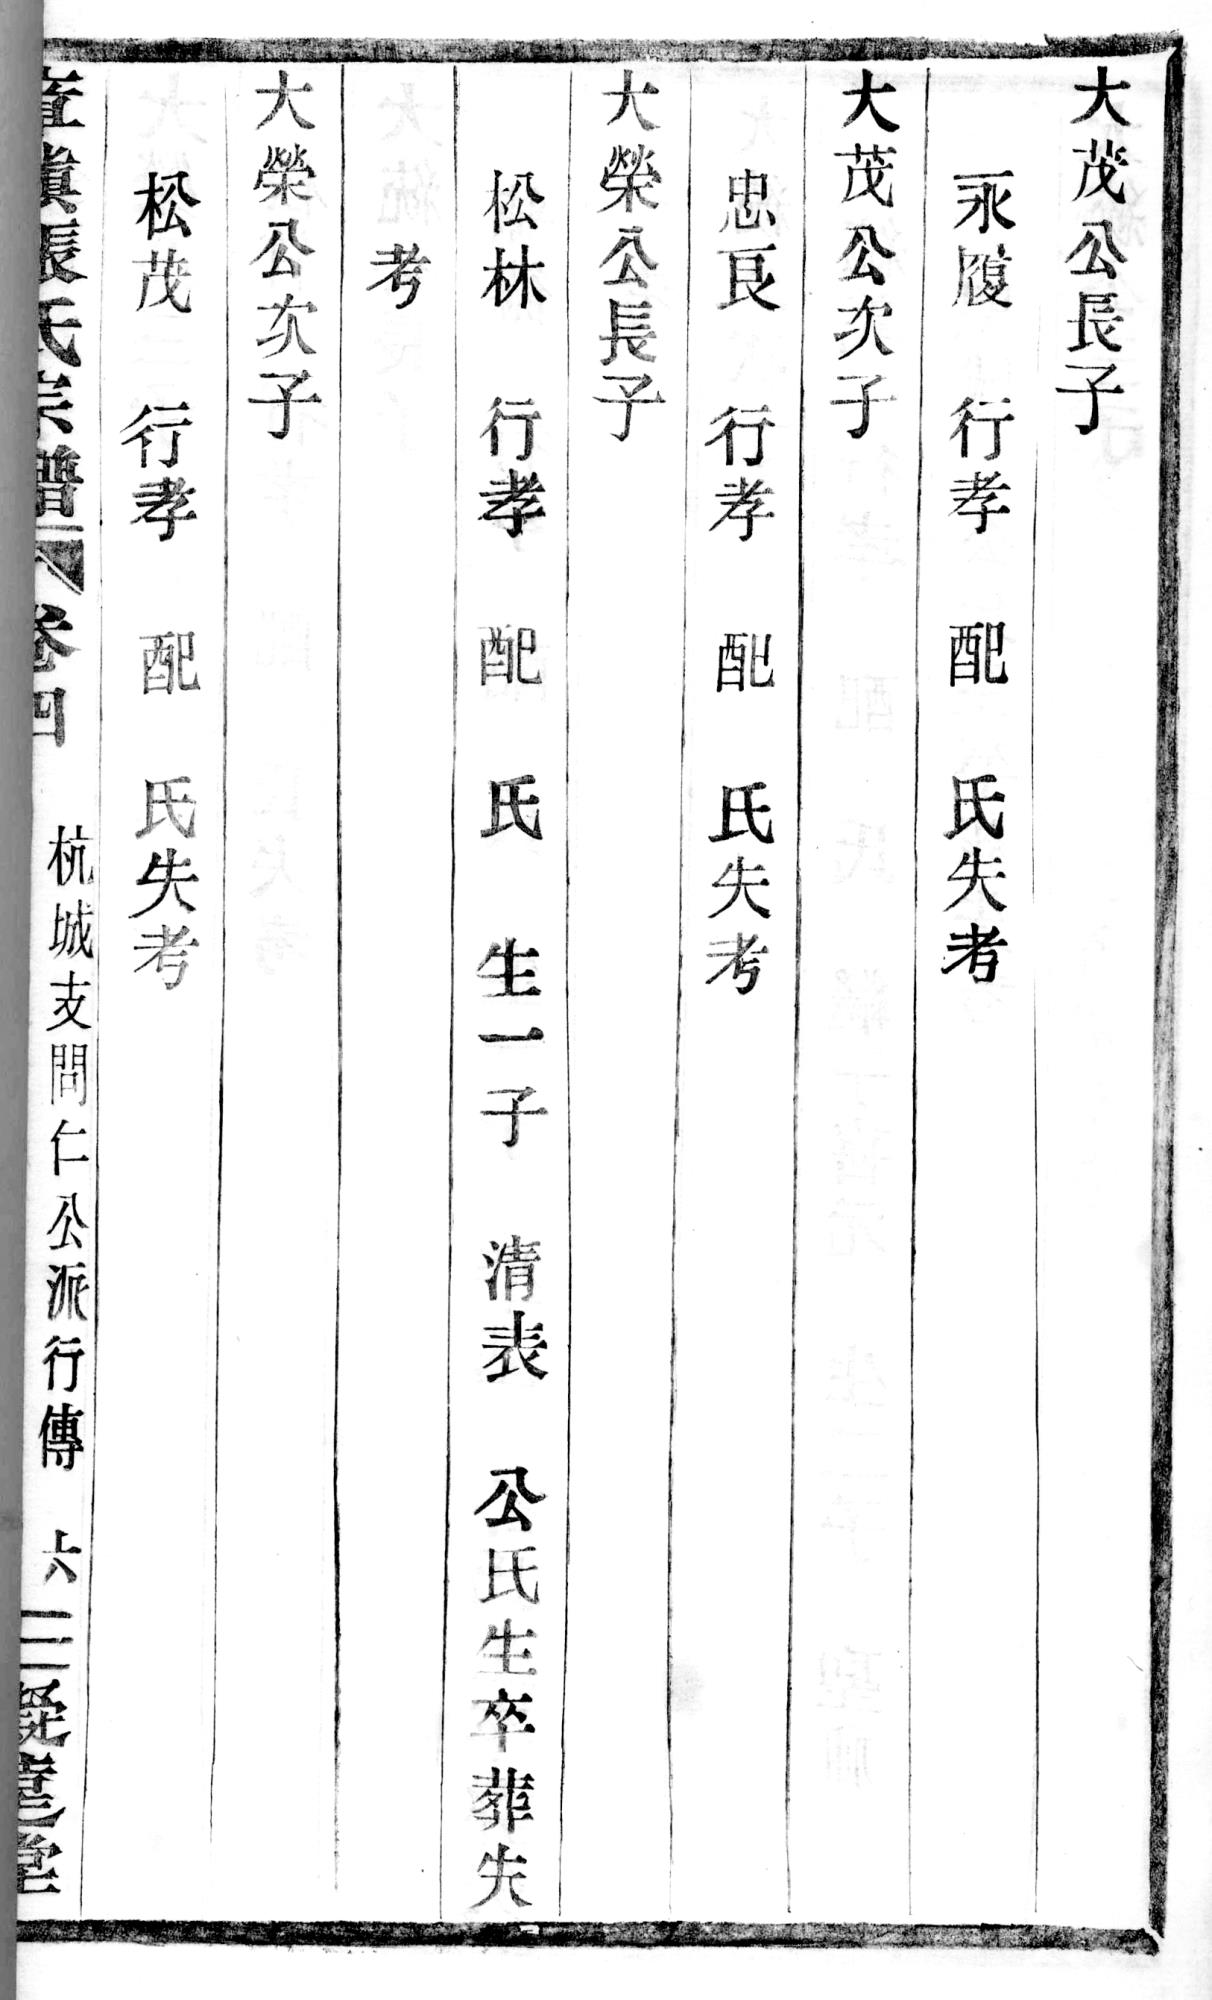 大茂公長子
永履 行孝 配 氏失考
大茂公次子
忠良 行孝 配 氏失考
大榮公長子
松林 行孝 配 氏 生一子 清表 公氏生卒葬失
考
大榮公次子
松茂 行孝 配 氏失考
張氏宗譜 卷四 杭城支問仁公派行傳 六 堂